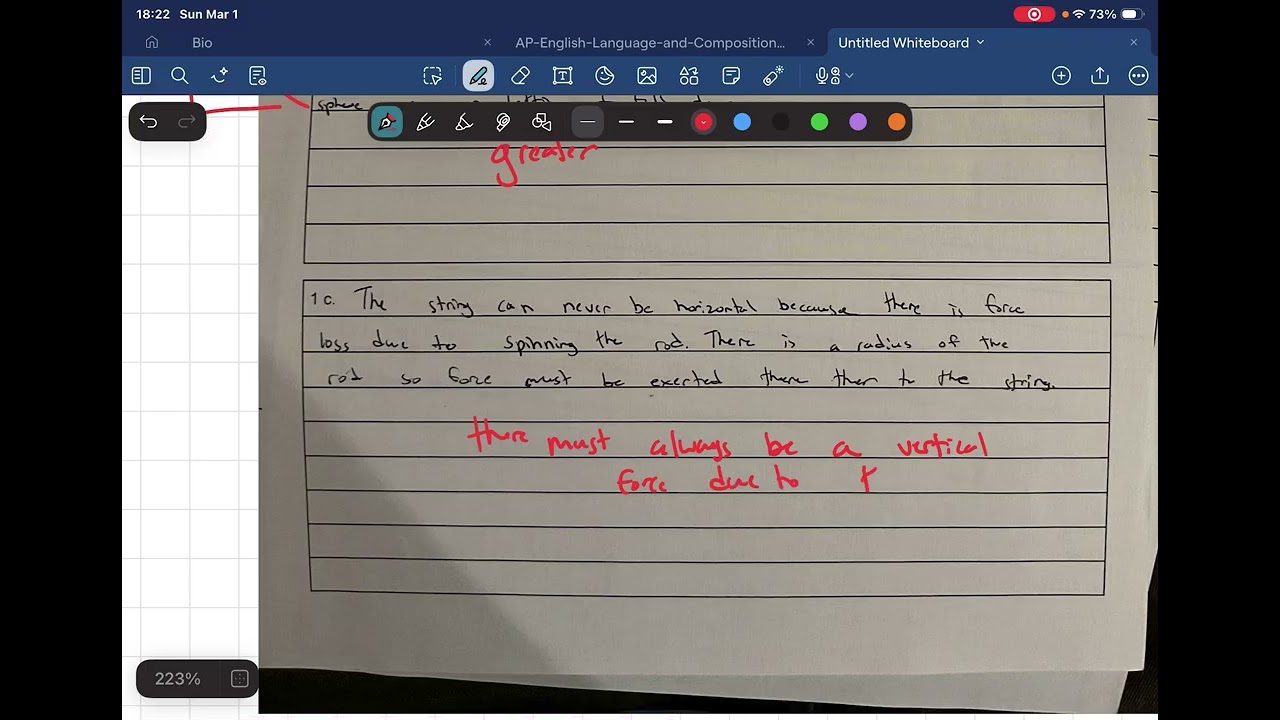 18:22 Sun Mar 1
73%
Bio
AP-English-Language-and-Composition...
Untitled Whiteboard
sphere
greater
1 c. The string can never be horizontal because there is force
loss due to spinning the rod. There is a radius of the
rod so force must be exerted there then to the string.
there must always be a vertical
force due to
223%